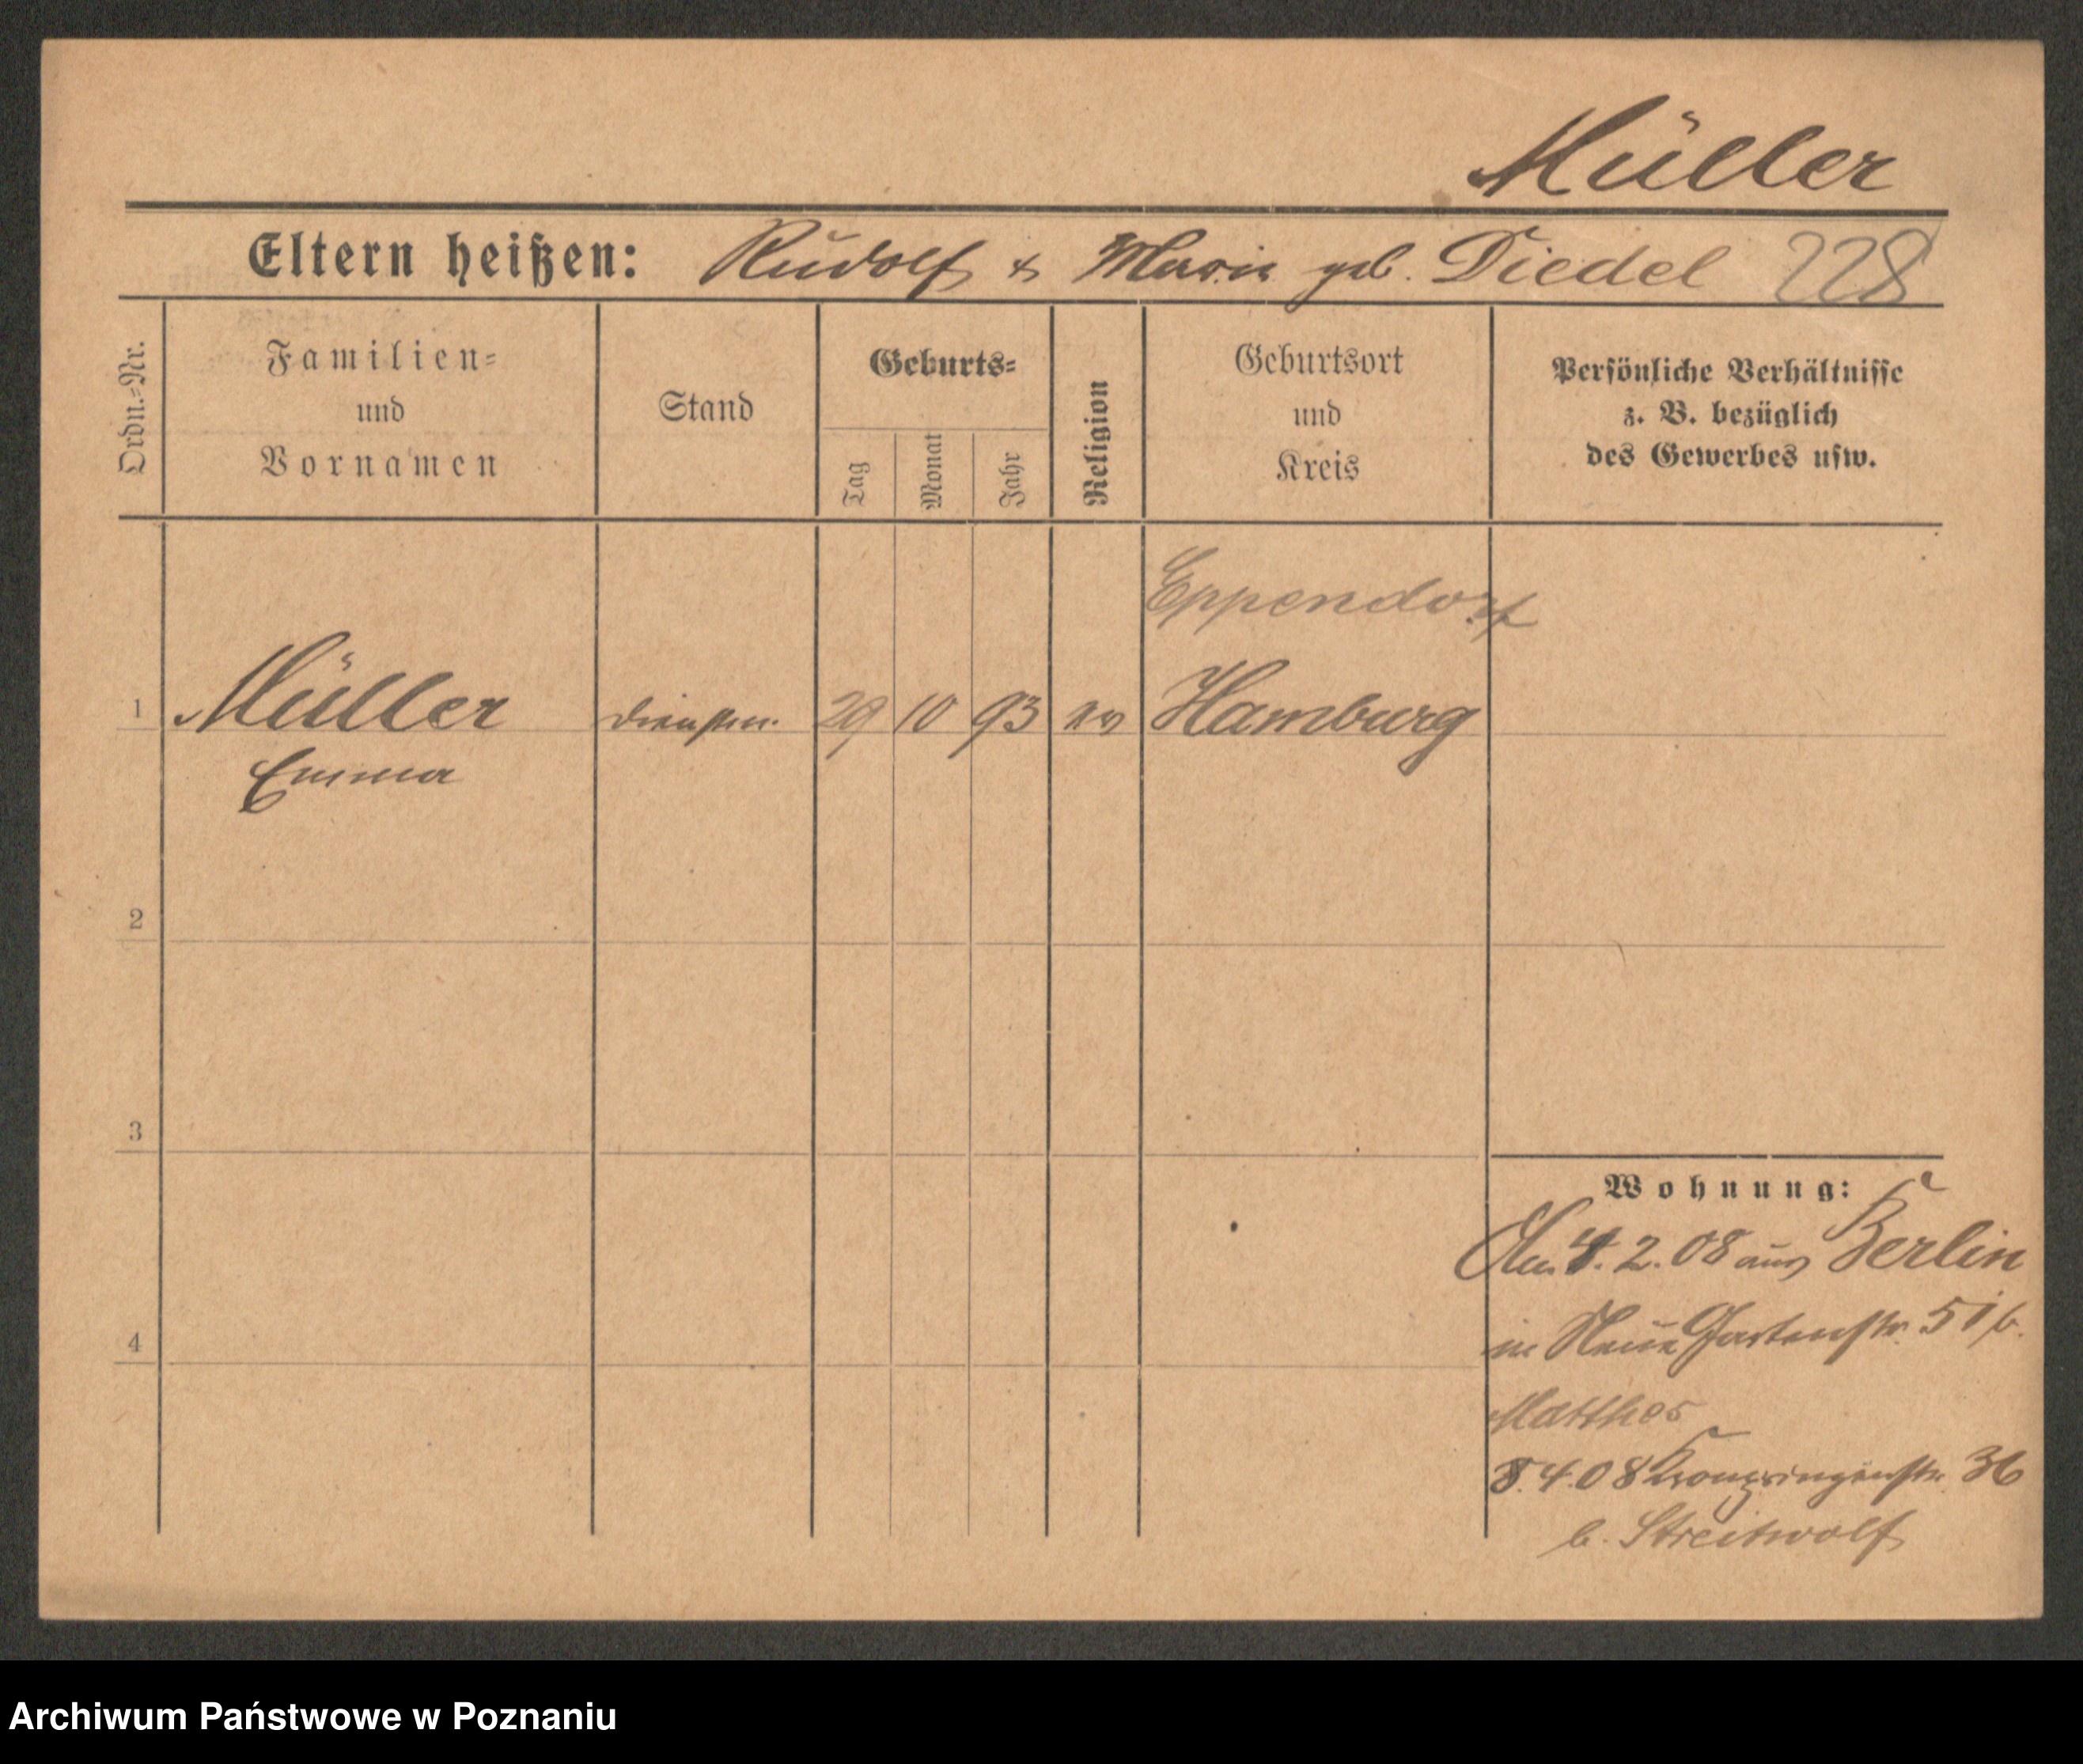 Müller
Eltern heißen: Rudolf & Marie geb. Diedel 228
Ordn.-Nr.
Familien-
und
Vornamen
Stand
Geburts-
Tag
Monat
Jahr
Religion
Geburtsort
und
Kreis
Persönliche Verhältnisse
z. B. bezüglich
des Gewerbes usw.
Eppendorf
1 Müller 29 10 93 ev Hamburg
Emma
2
3
4
Wohnung:
2.08 aus Berlin
in Neue Gartenstr. 51 b.
Matthes
8.4.08 Kronprinzenstr. 36
b. Streitwolf
Archiwum Państwowe w Poznaniu